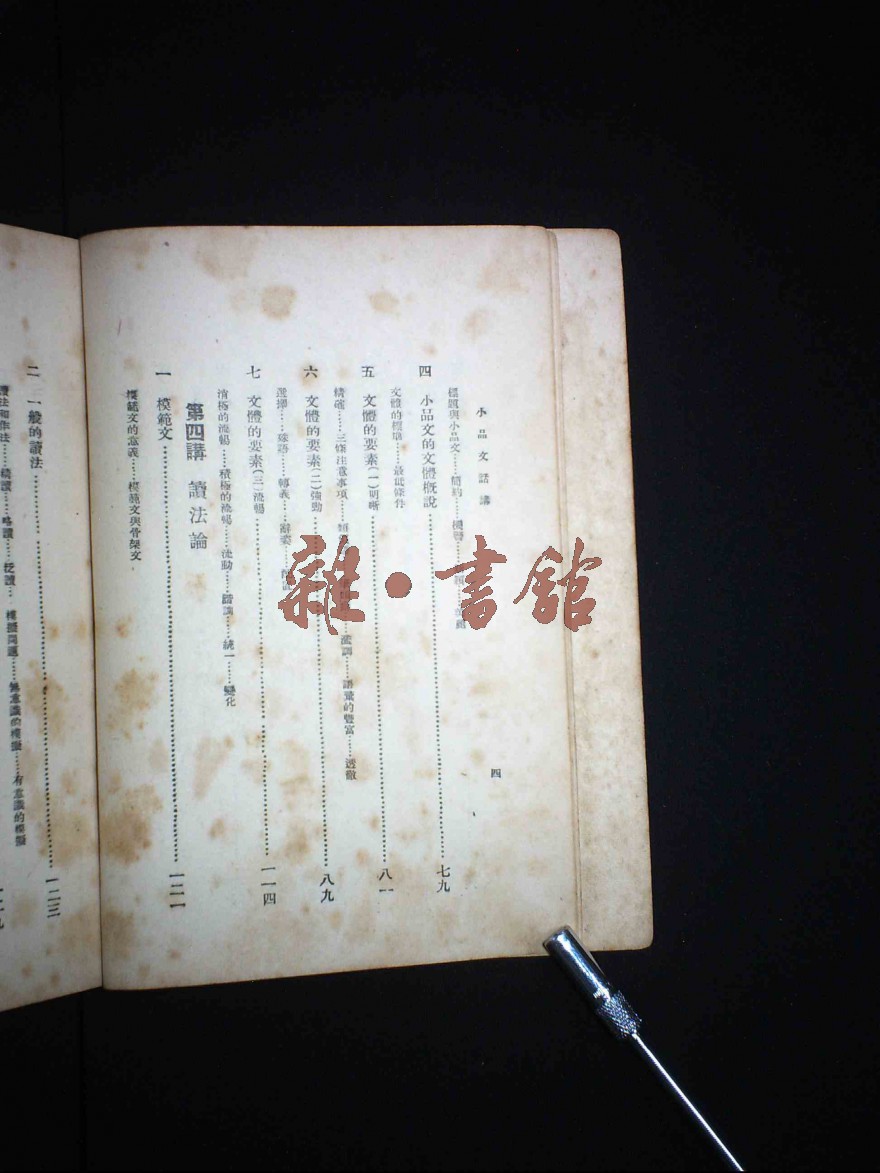 小品文話講
四
標題與小品文……簡約……機警……
四 小品文的文體概說……七九
文體的標準……最低條件
五 文體的要素(一)明晰……八一
精確……三條注意事項……濫調……語彙的豐富……透徹
六 文體的要素(二)強動……八九
選擇……綠語……轉義……辭姿……
七 文體的要素(三)流暢……一一四
消極的流暢……積極的流暢……流動……諧調……統一……變化
第四講 讀法論
一 模範文……一二一
模範文的意義……模範文與骨架文
二 一般的讀法……一二三
讀法和作法……精讀……略讀……泛讀……模擬問題……無意識的模擬……有意識的模擬
一二九
雜·書館